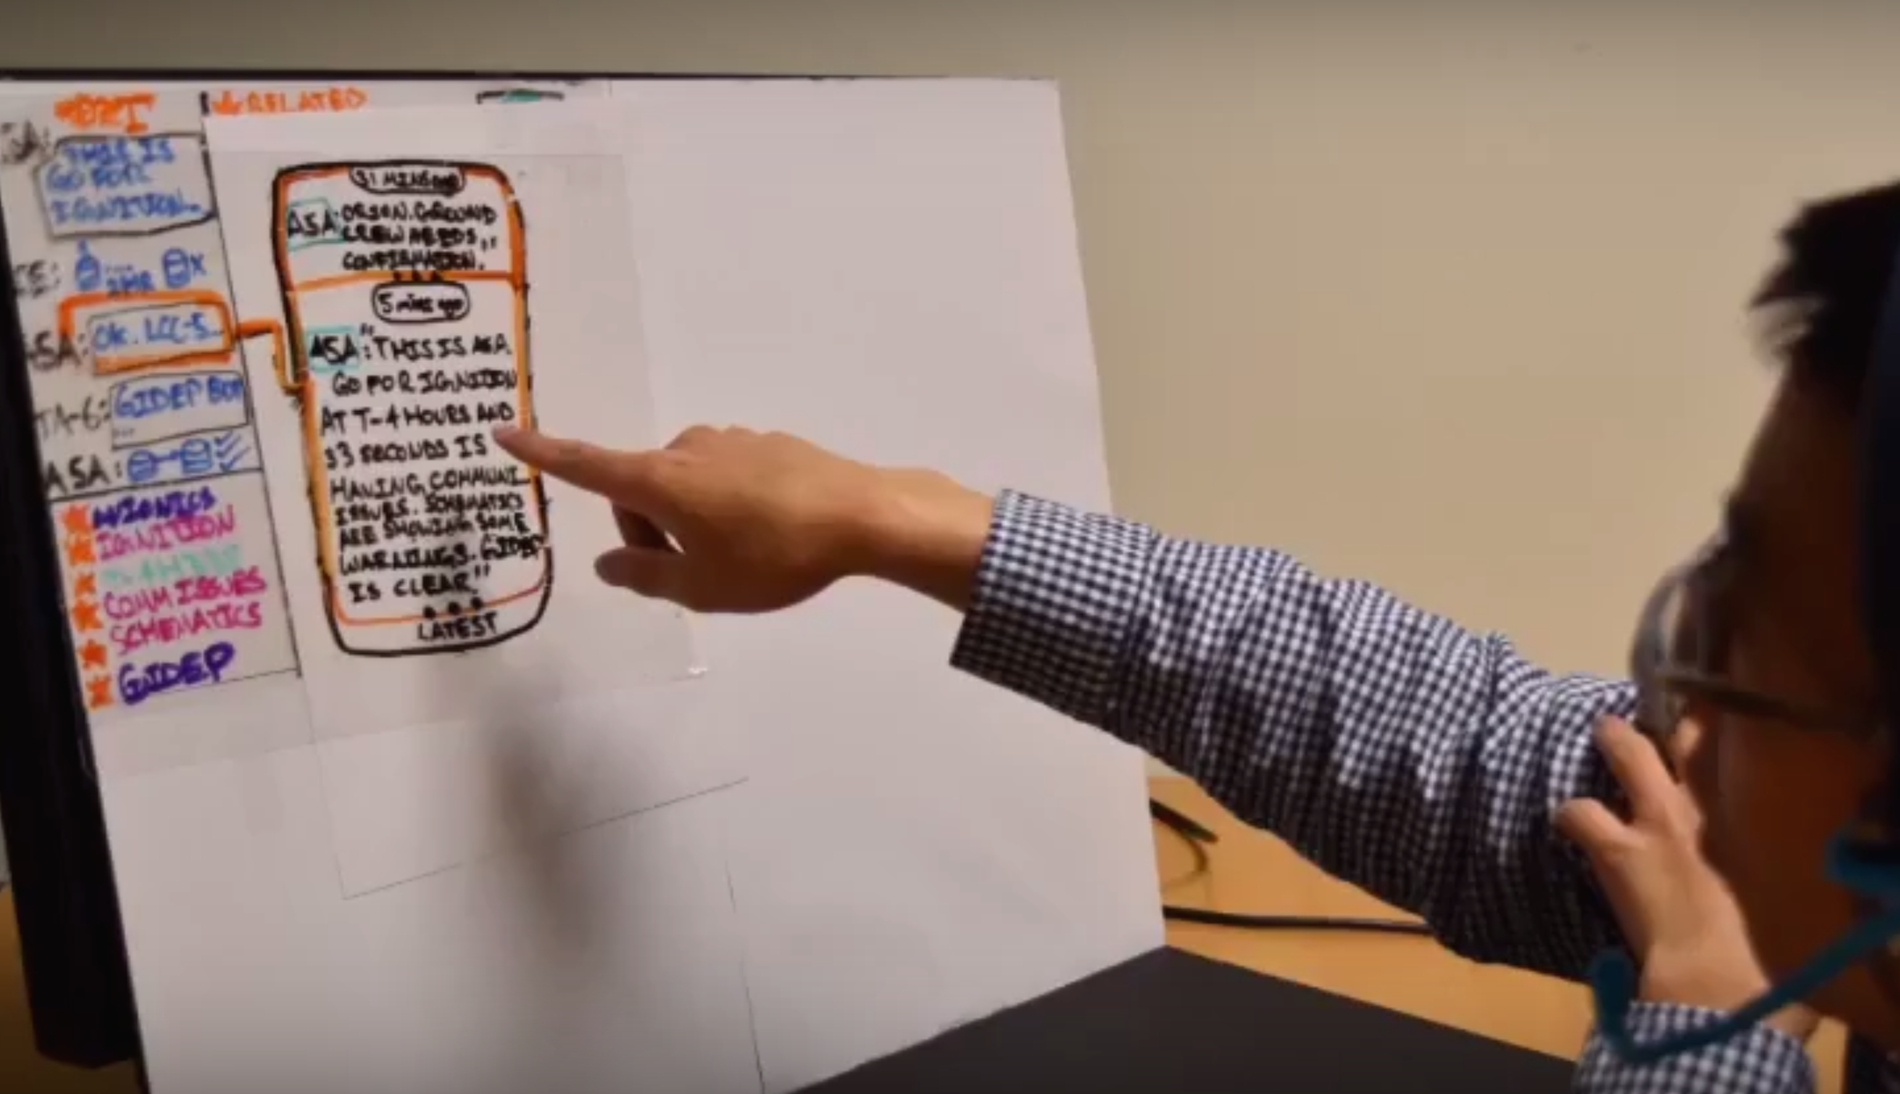 RELATED
THIS IS
GO FOR
IGNITION...
2HR
ASA: OK. LCC-5...
TA-6: GIDEP
...
ASA:
AVIONICS
IGNITION
COMM ISSUES
SCHEMATICS
GIDEP
31 MINS ago
ASA: ORION. GROUND
CREW NEEDS
CONFIRMATION."
5 mins ago
ASA: "THIS IS
GO FOR IGNITION
AT T-4 HOURS AND
33 SECONDS IS
HAVING COMMUNI
ISSUES. SCHEMATICS
ARE SHOWING SOME
WARNINGS. GIDEP
IS CLEAR."
LATEST